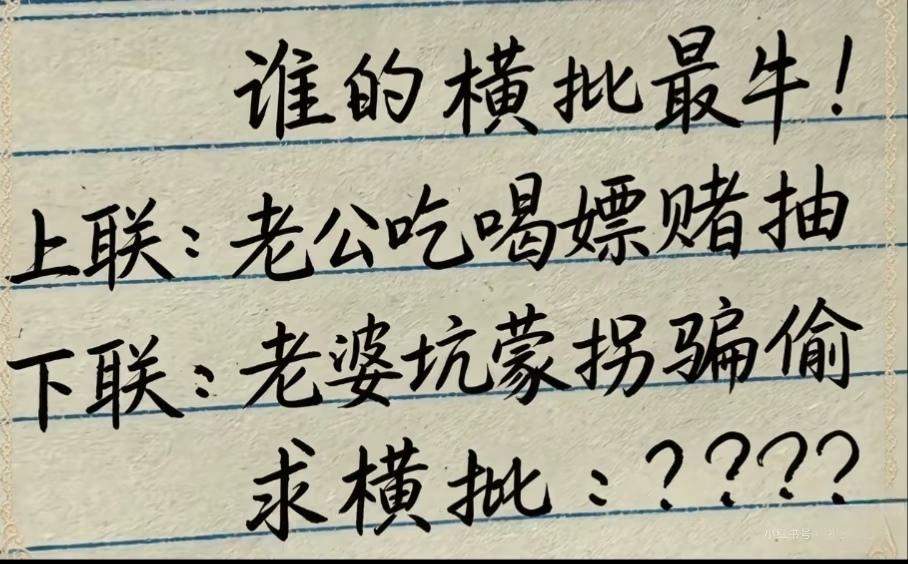 谁的横批最牛！
上联：老公吃喝嫖赌抽
下联：老婆坑蒙拐骗偷
求横批：？？？？
小红书号